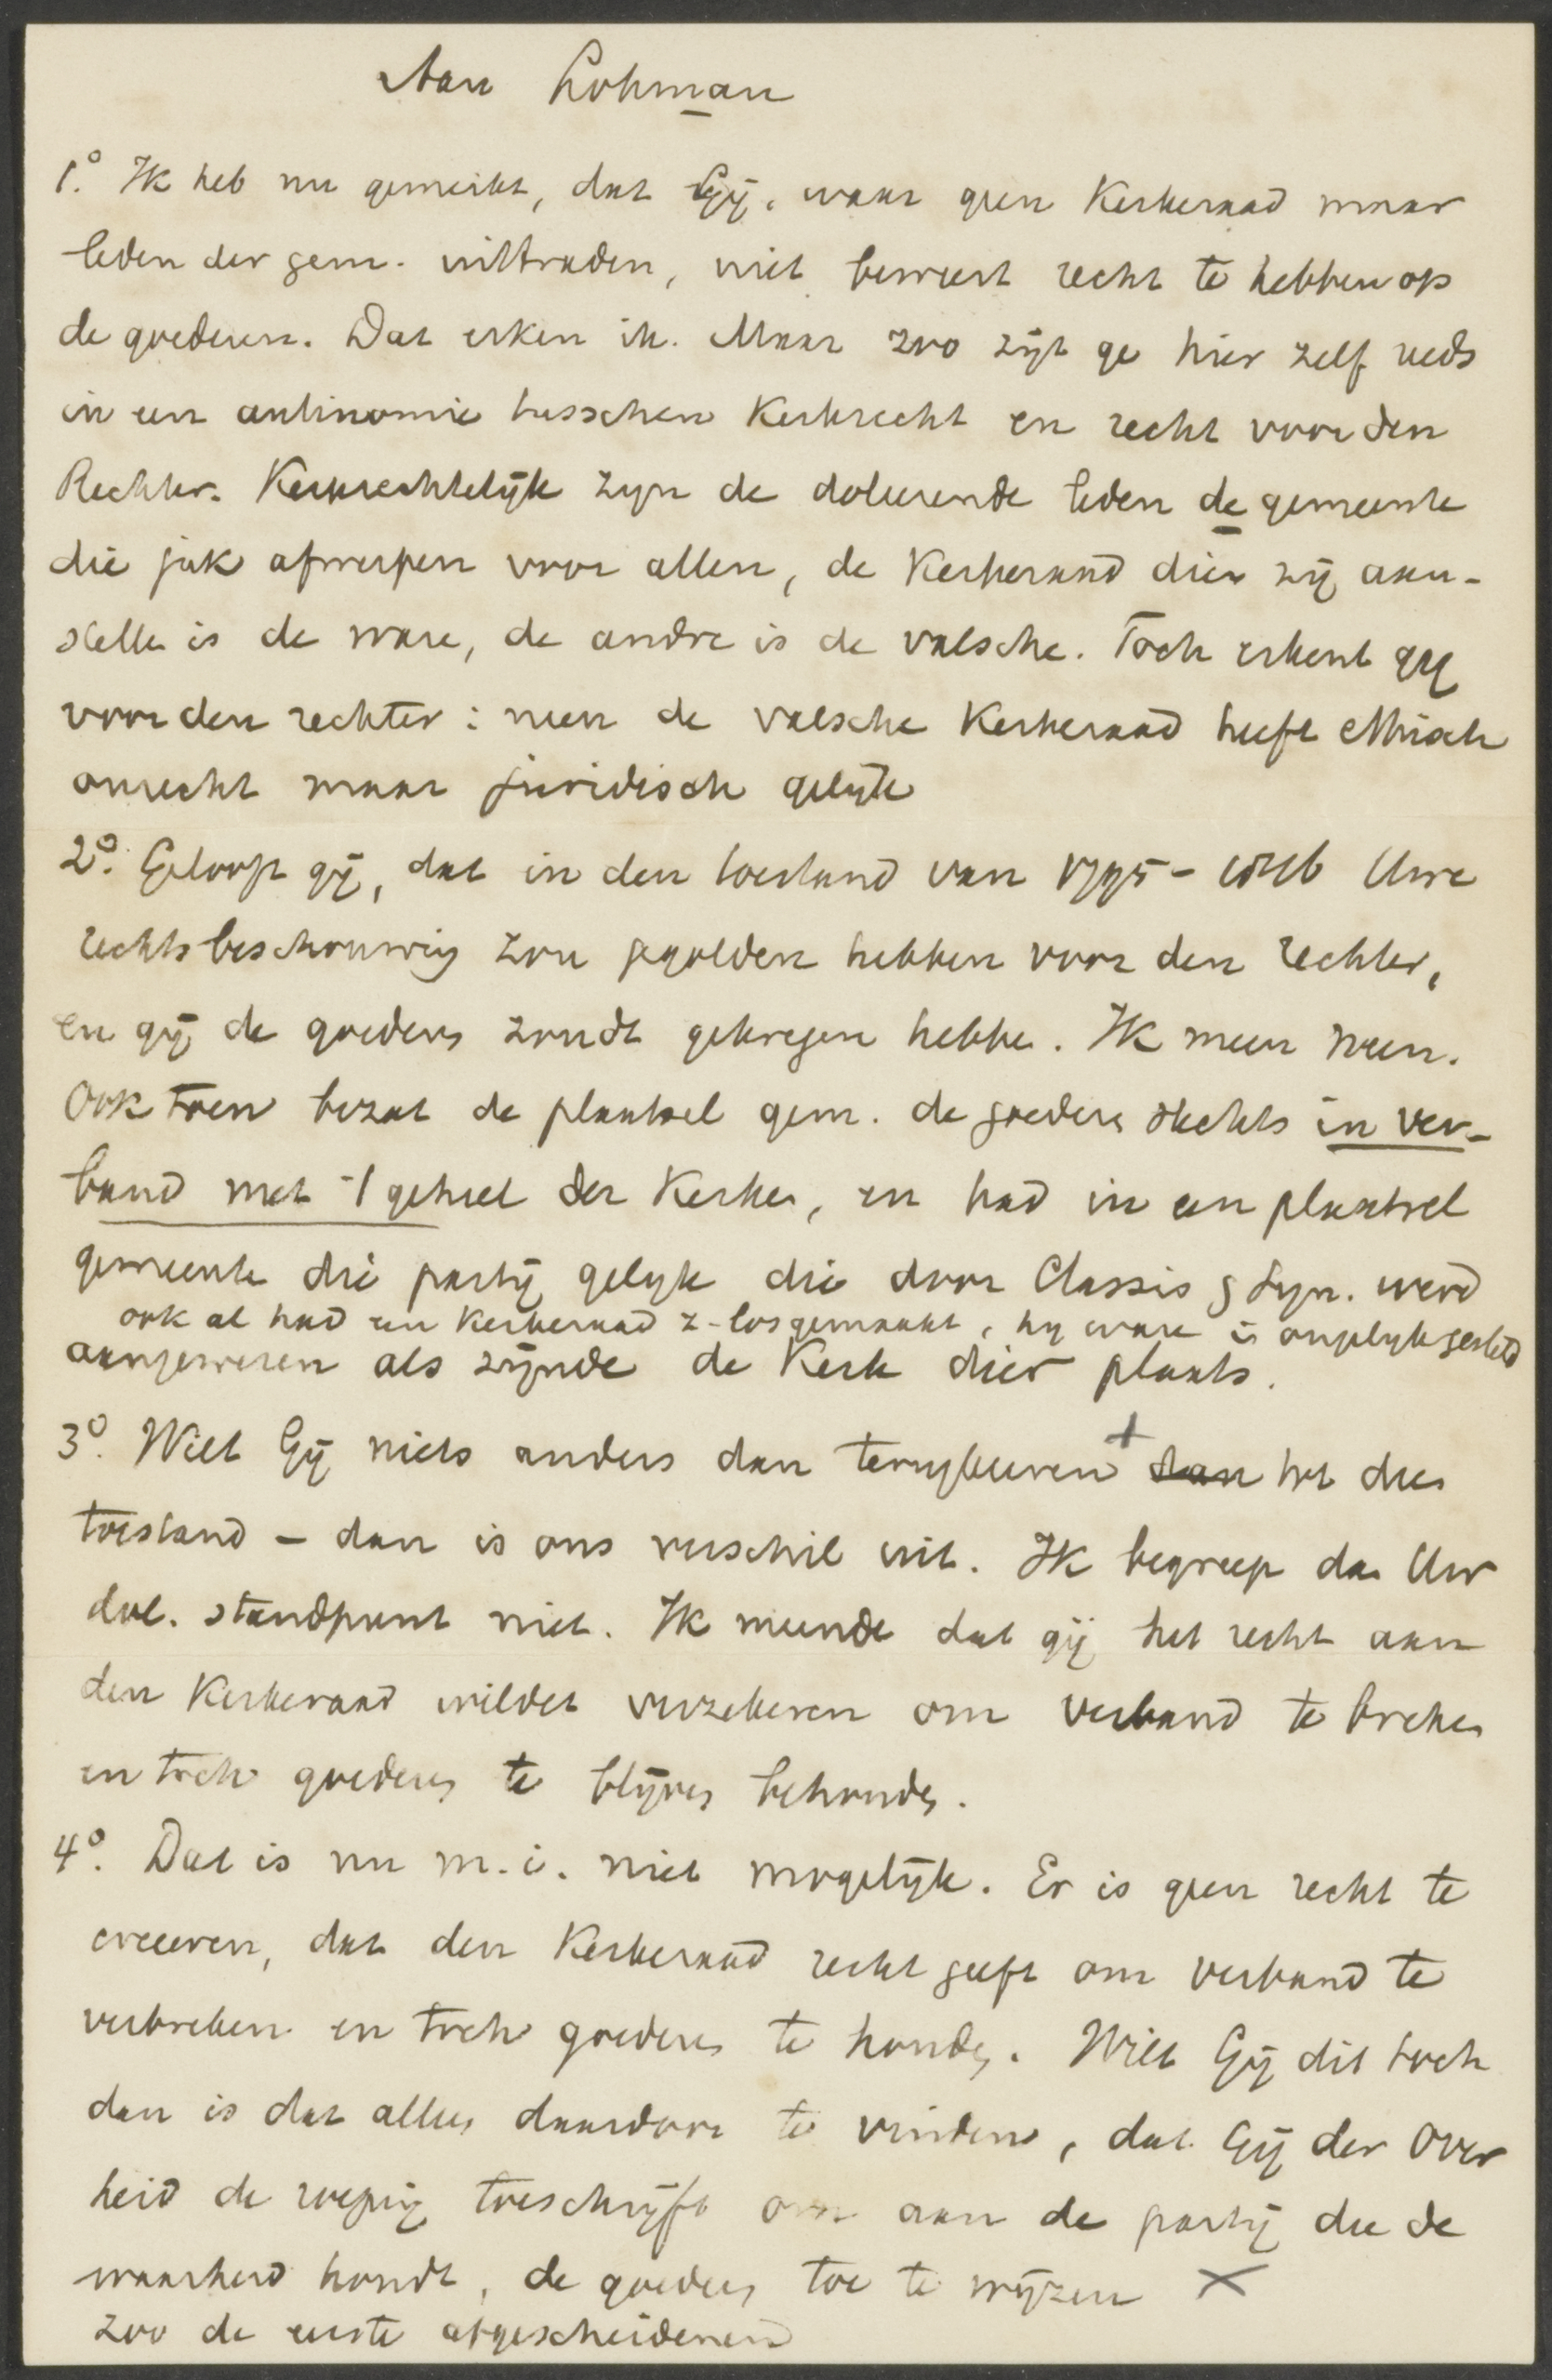 Aan Lohman
1.° Ik heb nu gemerkt, dat Gij, waar geen Kerkeraad maar
leden der gem. uittraden, niet beweert recht te hebben op
de goederen. Dat erken ik. Maar zoo zijt ge hier zelf reeds
in een antinomie tusschen Kerkrecht en recht voor den
Rechter. Kerkrechtelijk zijn de doleerende leden de gemeente
die juk afwerpen voor allen, de Kerkeraad dien zij aan-
stelle is de ware, de andre is de valsche. Toch erkent gij
voor den rechter: neen de valsche Kerkeraad heeft ethisch
onrecht maar juridisch gelijk
2°. Gelooft gij, dat in den toestand van 1795 - 1816 Uwe
rechtsbeschouwing zou gegolden hebben voor den rechter,
en gij de goederen zoudt gekregen hebbe. Ik meen neen.
Ook toen bezat de plaatsel gem. de goederen slechts in ver-
band met 't geheel der Kerken, en had in een plaatsel
gemeente die partij gelijk die door Classis & Syn. werd
ook al had een Kerkeraad z. losgemaakt, hij ware in ongelijk gesteld
aangewezen als zijnde de Kerk dier plaats.
3°. Wilt Gij niets anders dan terugkeeren + dan tot dien
toestand – dan is ons verschil uit. Ik begreep dan Uw
dol. standpunt niet. Ik meende dat gij het recht aan
den Kerkeraad wildet verzekeren om verband te breken
en toch goederen te blijven behouden.
4°. Dat is nu m.i. niet mogelijk. Er is geen recht te
creeeren, dat den Kerkeraad recht geeft om verband te
verbreken en toch goederen te houden. Wilt Gij dit toch
dan is dat alleen daardoor te vinden, dat Gij der Over
heid de roeping toeschrijft om aan de partij die de
waarheid houdt, de goederen toe te wijzen X
zoo de eerste afgescheidenen